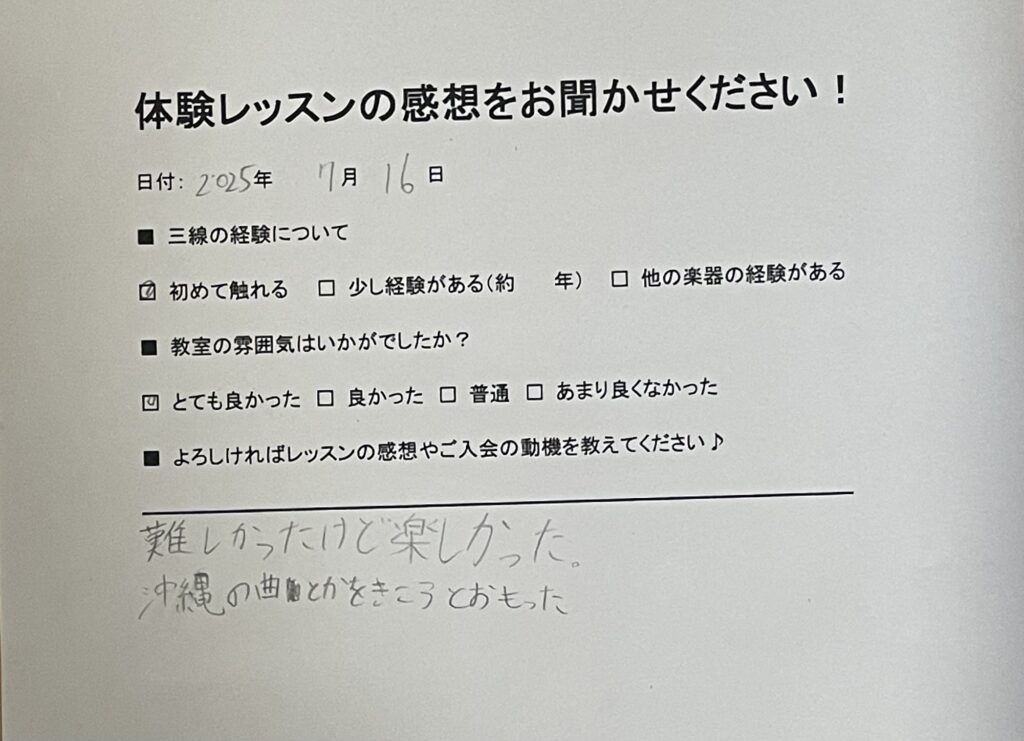 体験レッスンの感想をお聞かせください！
日付： 2025年 7月 16日
■ 三線の経験について
☑ 初めて触れる □ 少し経験がある（約　　年） □ 他の楽器の経験がある
■ 教室の雰囲気はいかがでしたか？
☑ とても良かった □ 良かった □ 普通 □ あまり良くなかった
■ よろしければレッスンの感想やご入会の動機を教えてください♪
難しかったけど楽しかった。
沖縄の曲とかをきころとおもった